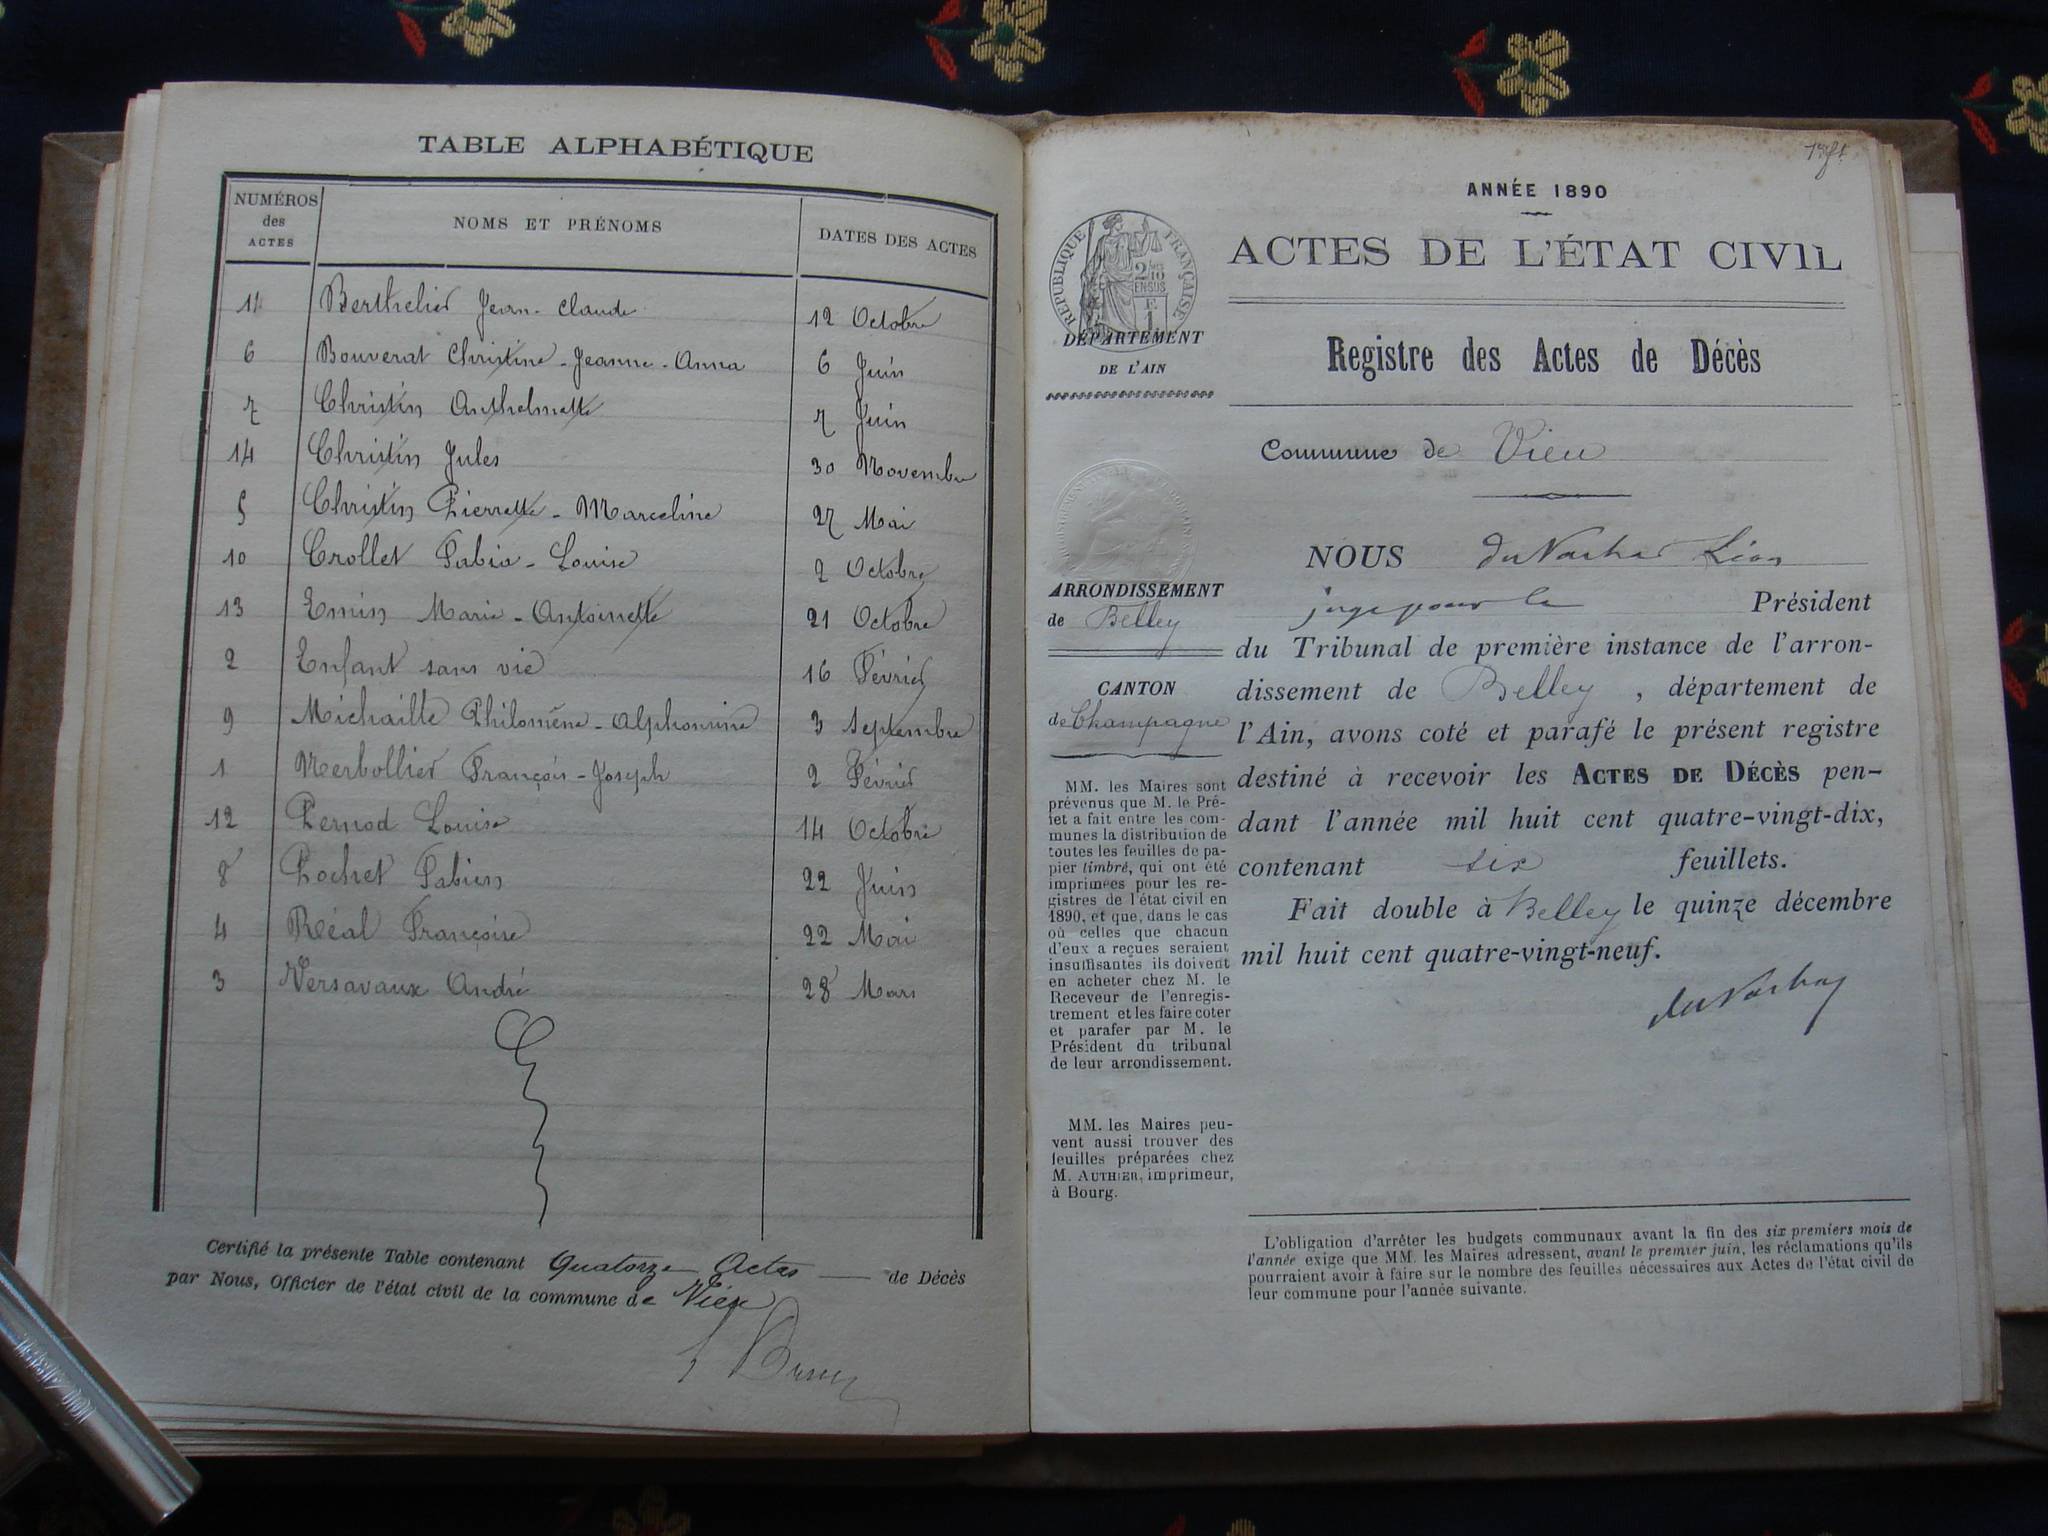 TABLE ALPHABÉTIQUE
NUMÉROS des ACTES
NOMS ET PRÉNOMS
DATES DES ACTES
11 Berthelier Jean-Claude 12 Octobre
6 Bouverat Christine-Jeanne-Anna 6 Juin
7 Christin Anthelmette 7 Juin
14 Christin Jules 30 Novembre
5 Christin Pierrette-Marceline 27 Mai
10 Crollet Fabia-Louise 2 Octobre
13 Emin Marie-Antoinette 21 Octobre
2 Enfant sans vie 16 Février
9 Michaille Philomène-Alphonsine 3 Septembre
1 Nerbollier François-Joseph 2 Février
12 Pernod Louise 14 Octobre
8 Pochet Fabien 22 Juin
4 Réal Françoise 22 Mai
3 Versavaux André 28 Mars
Certifié la présente Table contenant Quatorze Actes de Décès
par Nous, Officier de l'état civil de la commune de Vieu
ANNÉE 1890
ACTES DE L'ÉTAT CIVIL
RÉPUBLIQUE FRANÇAISE
2/10 EN SUS
DÉPARTEMENT
DE L'AIN
Registre des Actes de Décès
Commune de Vieu
ARRONDISSEMENT
de Belley
CANTON
de Champagne
MM. les Maires sont
prévenus que M. le Pré-
fet a fait entre les com-
munes la distribution de
toutes les feuilles de pa-
pier timbré, qui ont été
imprimées pour les re-
gistres de l'état civil en
1890, et que, dans le cas
où celles que chacun
d'eux a reçues seraient
insuffisantes ils doivent
en acheter chez M. le
Receveur de l'enregis-
trement et les faire coter
et parafer par M. le
Président du tribunal
de leur arrondissement.
MM. les Maires peu-
vent aussi trouver des
feuilles préparées chez
M. AUTHIER, imprimeur,
à Bourg.
NOUS Léon
juge pour le Président
du Tribunal de première instance de l'arron-
dissement de Belley, département de
l'Ain, avons coté et parafé le présent registre
destiné à recevoir les ACTES DE DÉCÈS pen-
dant l'année mil huit cent quatre-vingt-dix,
contenant six feuillets.
Fait double à Belley le quinze décembre
mil huit cent quatre-vingt-neuf.
L'obligation d'arrêter les budgets communaux avant la fin des six premiers mois de
l'année exige que MM. les Maires adressent, avant le premier juin, les réclamations qu'ils
pourraient avoir à faire sur le nombre des feuilles nécessaires aux Actes de l'état civil de
leur commune pour l'année suivante.